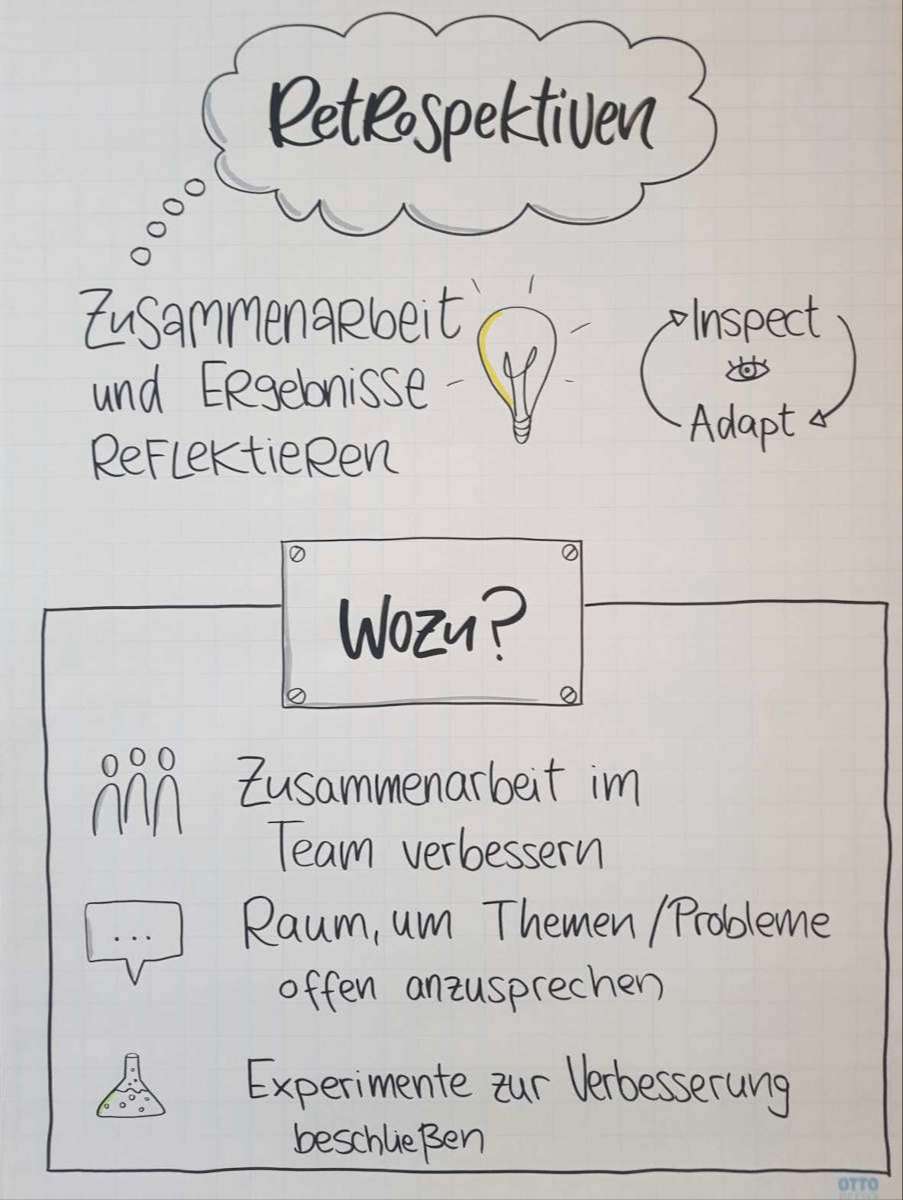 Retrospektiven
Zusammenarbeit
und Ergebnisse
reflektieren
Inspect
Adapt
Wozu?
Zusammenarbeit im
Team verbessern
Raum, um Themen/Probleme
offen anzusprechen
Experimente zur Verbesserung
beschließen
OTTO